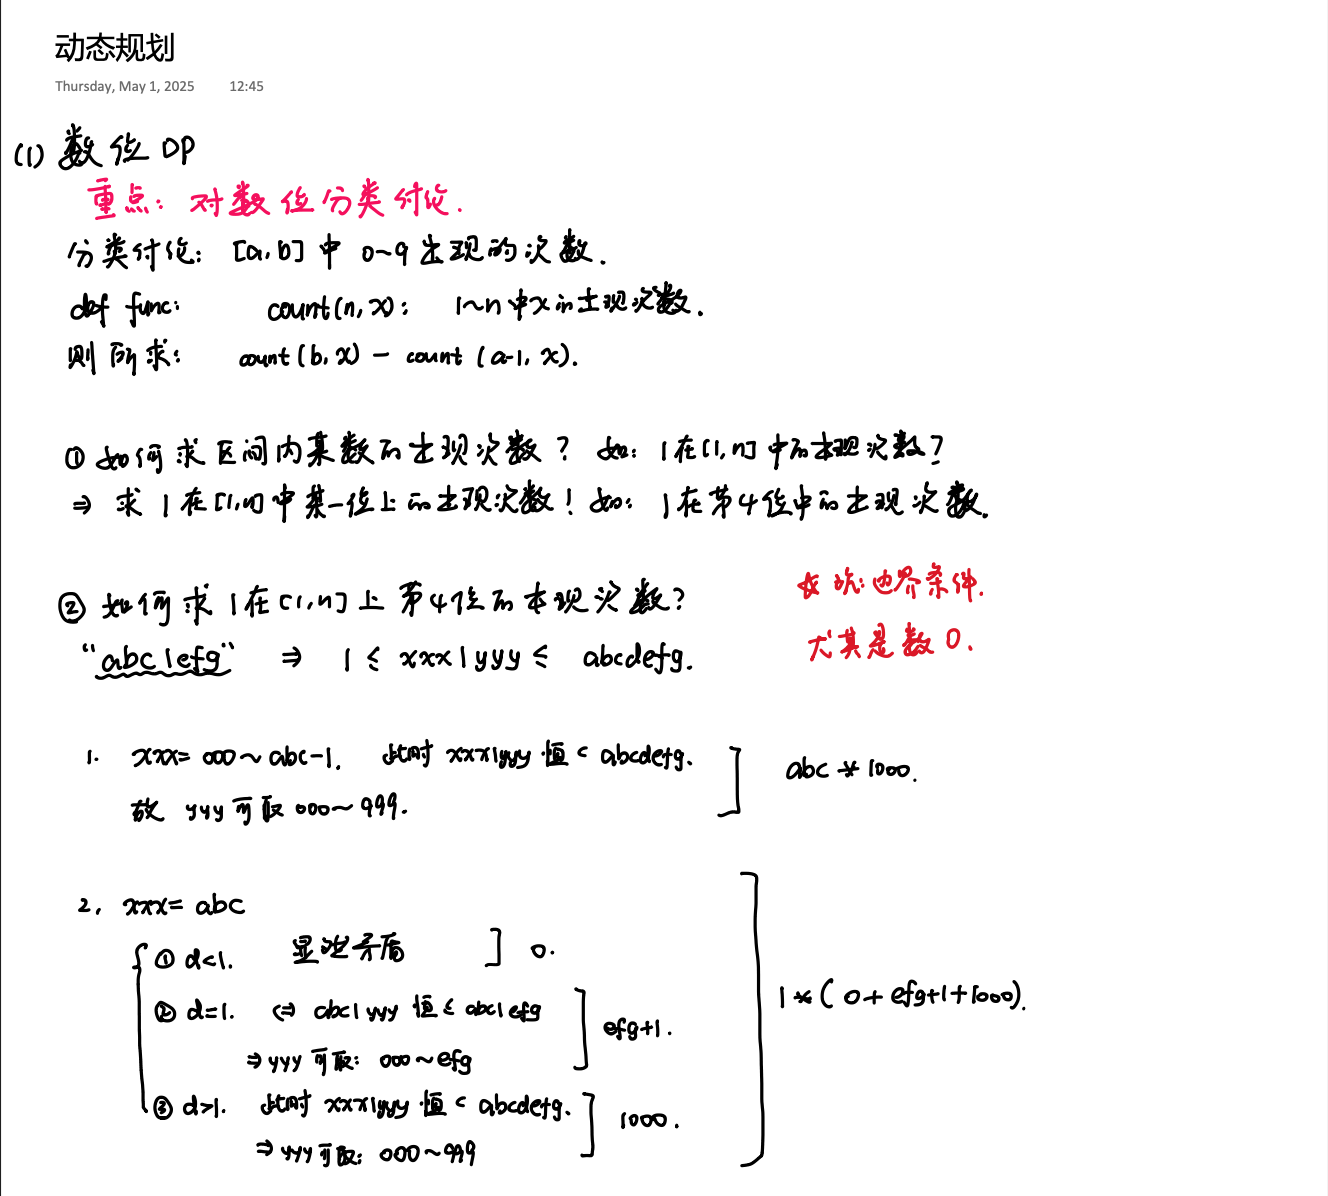 动态规划
Thursday, May 1, 2025 12:45
(1) 数位DP
重点: 对数位分类讨论.
分类讨论: [a,b] 中 0~9 出现的次数.
def func: count(n,x): 1~n中x的出现次数.
则所求: count(b,x) - count(a-1,x).
① 如何求区间内某数的出现次数? 如: 1在[1,n]中的出现次数?
⇒ 求1在[1,n]中某一位上的出现次数! 如: 1在第4位中的出现次数.
☆坑: 边界条件.
尤其是数0.
② 如何求1在[1,n]上第4位的出现次数?
"abc1efg" ⇒ 1 ≤ xxx1yyy ≤ abcdefg.
1. xxx= 000~abc-1. 此时 xxx1yyy 恒< abcdefg.
故 yyy可取 000~999. ] abc * 1000.
2. xxx= abc
① d<1. 显然矛盾 ] 0.
② d=1. ⇔ abc1yyy 恒≤ abc1efg
⇒ yyy可取: 000~efg ] efg+1.
③ d>1. 此时 xxx1yyy 恒< abcdefg.
⇒ yyy可取: 000~999 ] 1000.
1*(0+efg+1+1000).